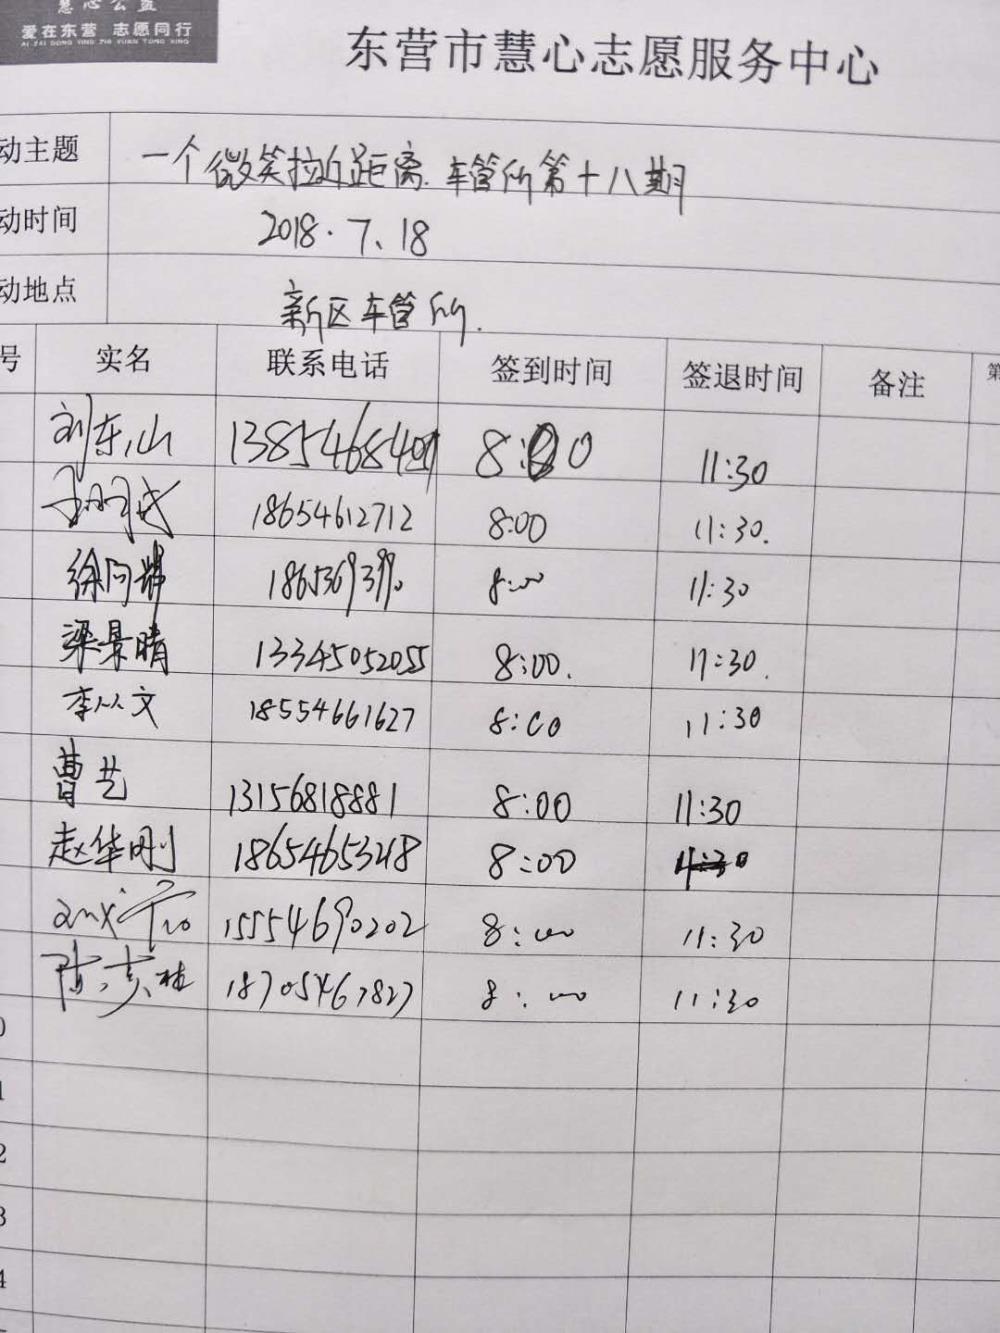 慧心公益
爱在东营 志愿同行
AI ZAI DONG YING ZHI YUAN TONG XING
东营市慧心志愿服务中心
动主题 一个微笑拉近距离.车管所第十八期
动时间 2018.7、18
动地点 新区车管所.
号 实名 联系电话 签到时间 签退时间 备注 第
刘东山 8:00 11:30
18654612712 8:00 11:30.
徐向辉 8:00 11:30
梁景晴 13345052055 8:00. 11:30.
李从文 18554661627 8:00 11:30
曹艺 13156818881 8:00 11:30
赵华刚 18654653248 8:00 11:30
15554690202 8:00 11:30
18705467827 8:00 11:30
0
1
2
3
4